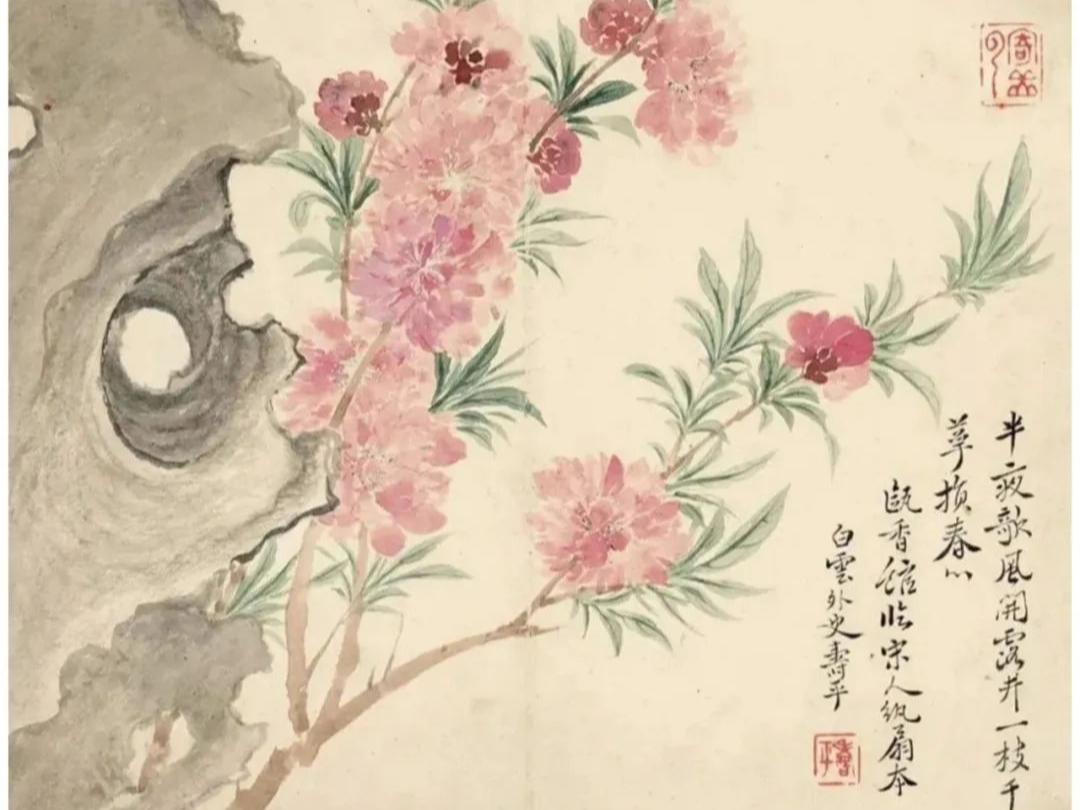 寄岳雲
半夜歌風開露井一枝千
萼損春心
甌香館臨宋人紈扇本
白雲外史壽平
壽平